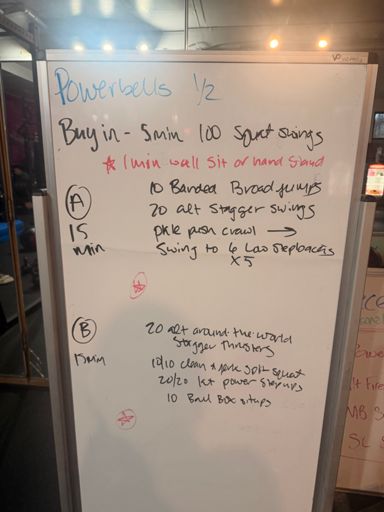 Powerbells 1/2
Buy in - 5min 100 squat swings
☆ 1 min wall sit or hand stand
10 Banded Broad jumps
A 20 alt stagger swings
15 min push crawl →
Swing to 6 stepbacks
x 5
B 20 alt around the world
Stagger Thrusters
15min 10/10 clean + jerk split squat
20/20 power step ups
10 Ball Box situps